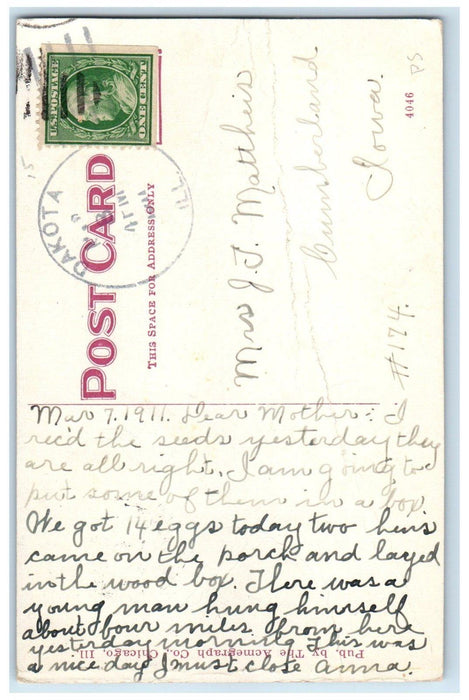 U.S. POSTAGE
ONE CENT
DAKOTA
ILL.
POST CARD
THIS SPACE FOR ADDRESS ONLY
Mrs J. T. Mattheis
Cumberland
Iowa.
#174.
4046
PS
Mar 7. 1911. Dear Mother: I
rec'd the seeds yesterday they
are all right. I am going to
put some of them in a box
We got 14 eggs today two hens
came on the porch and layed
in the wood box. There was a
young man hung himself
about four miles from here
yesterday morning This was
a nice day I must close Anna.
Pub. by The Acmegraph Co., Chicago, Ill.